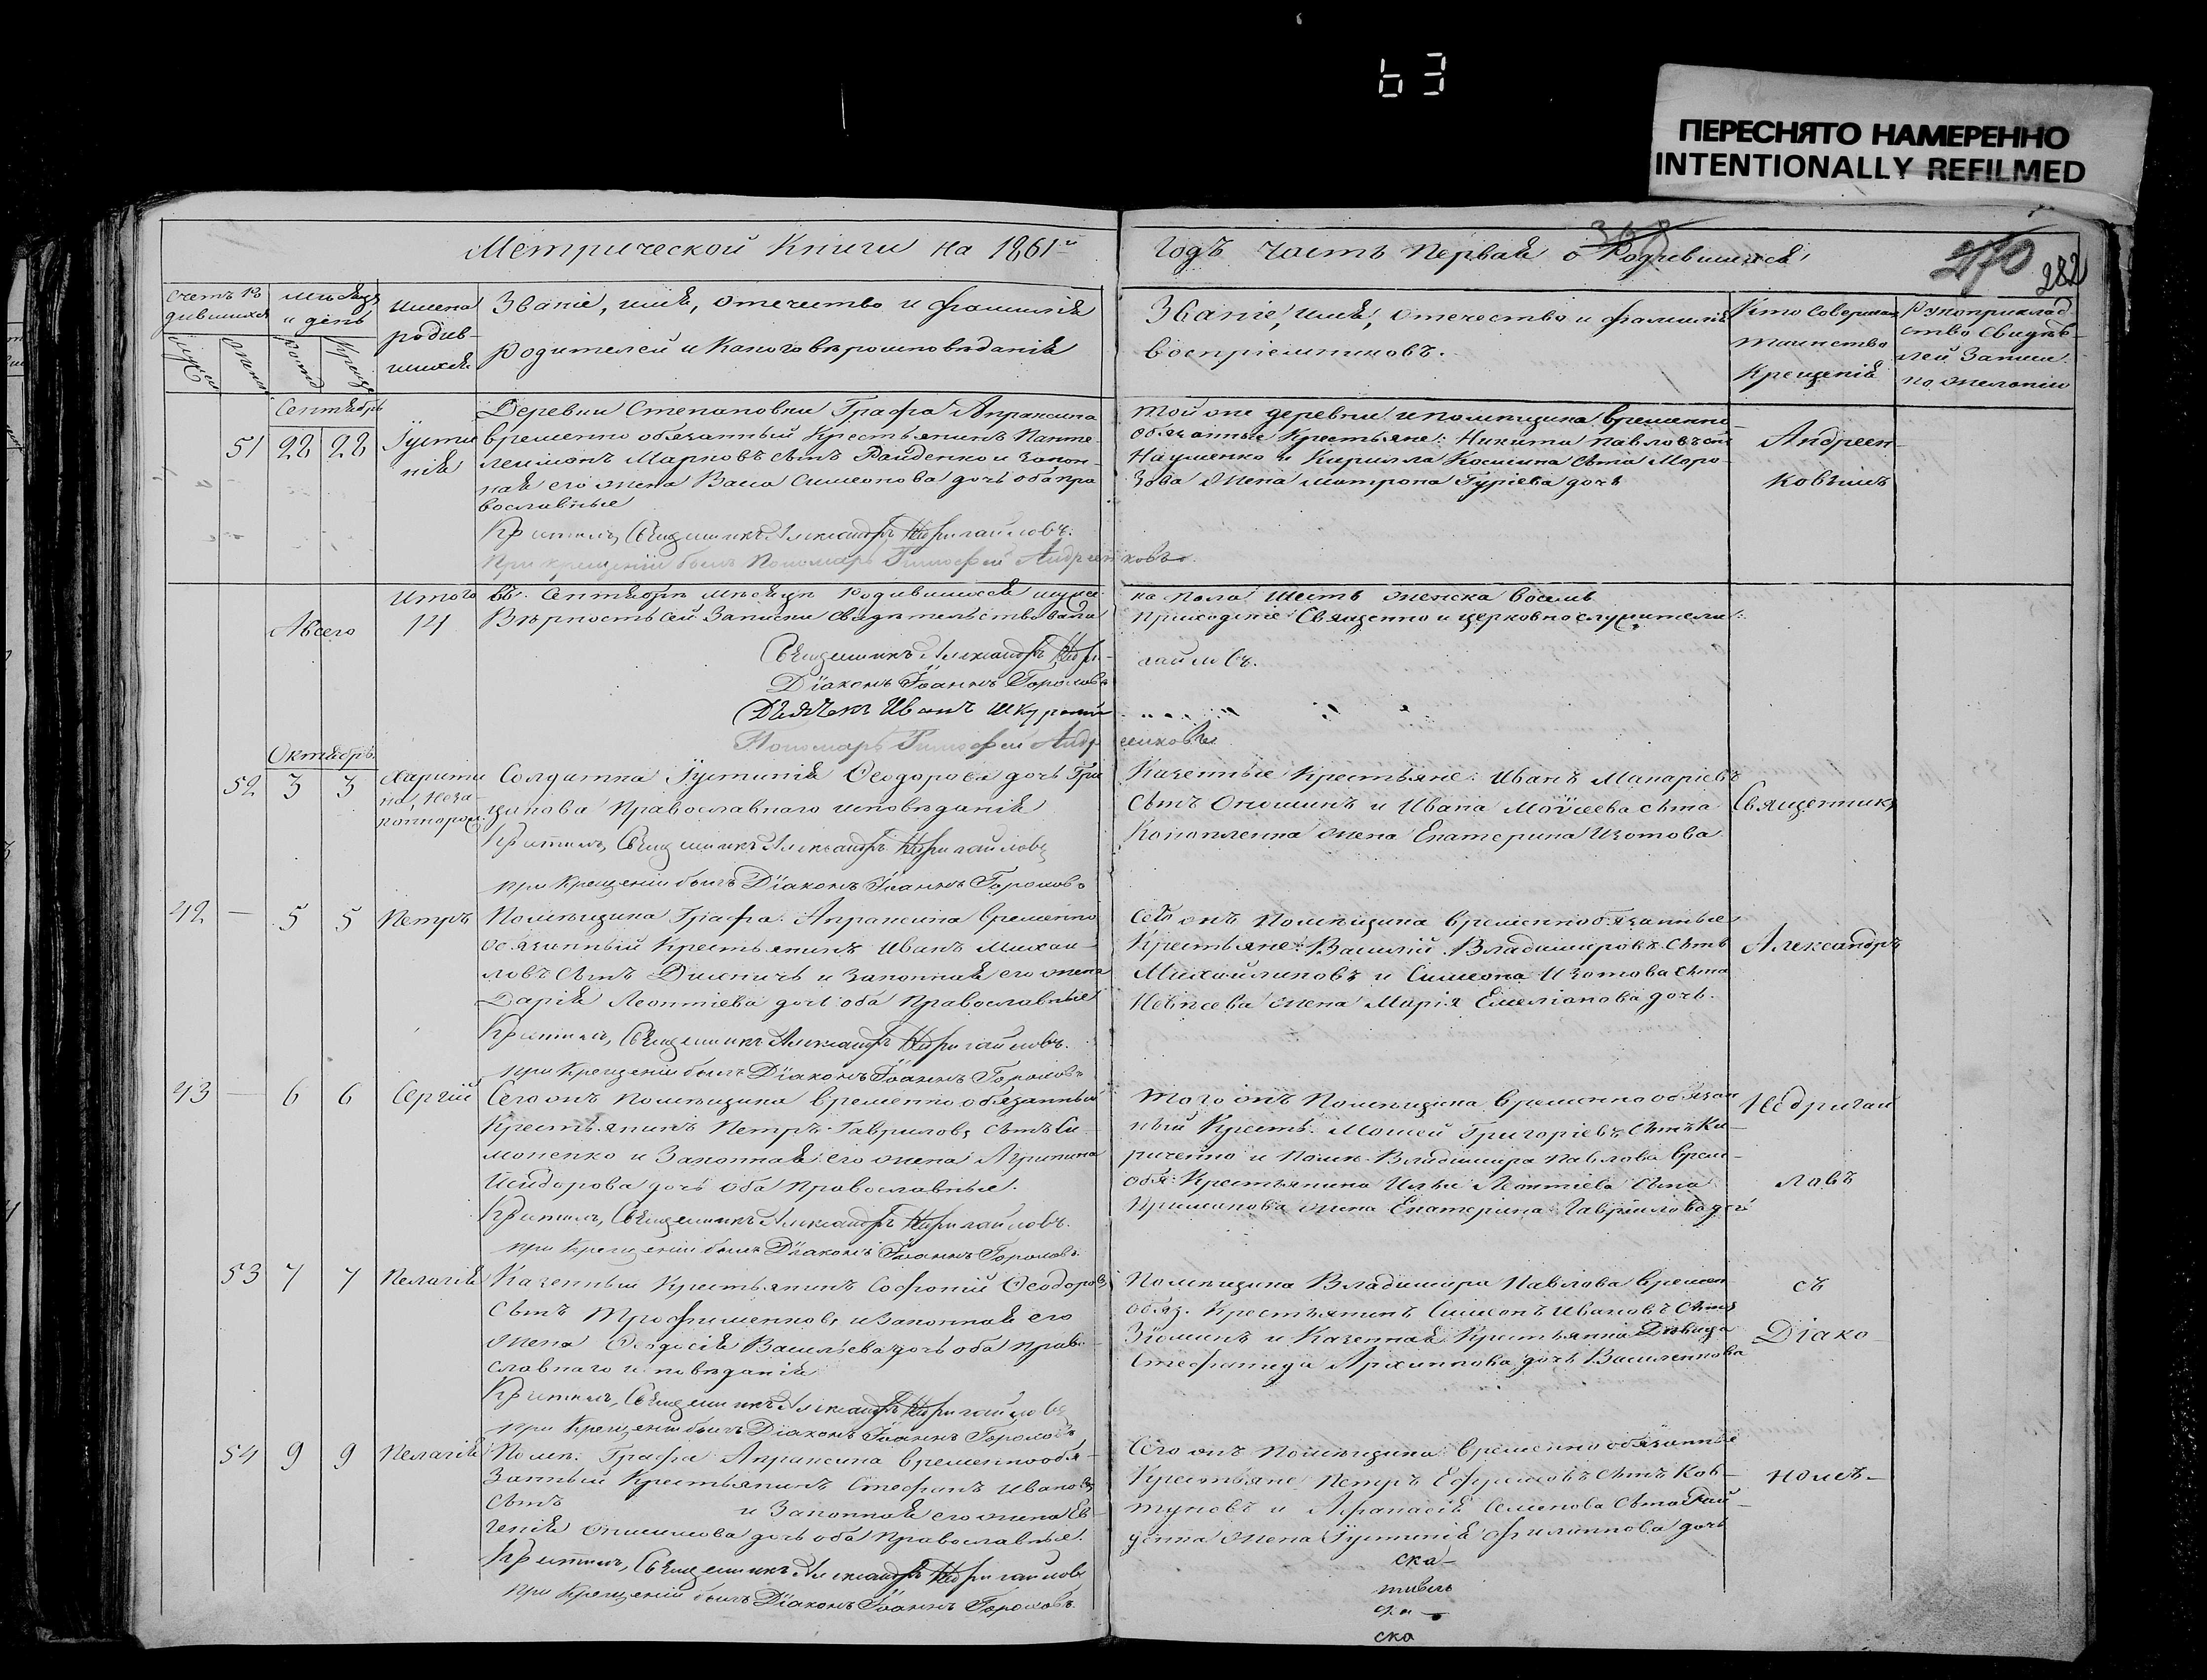 63
ПЕРЕСНЯТО НАМЕРЕННО
INTENTIONALLY REFILMED
Метрической Книги на 1861й
годъ часть первая о Родившихся
270
282
счетъ ро
дившихся
мѣсяцъ
и день
имена
родив
шихся
Званіе, имя, отечество и фамилія
родителей и какого вѣроисповѣданія
Званіе, имя, отечество и фамилія
воспріемниковъ.
Кто совершал
таинство
крещенія
Рукоприклад
ство свидѣте
лей записи
по желанію
Сентябрь
51 28 28 Іусти
нія
Деревни Степановки Графа Апраксина
временно обязанный крестьянинъ Панте
леимонъ Марковъ сынъ Гайденко и закон
ная его жена Васа Симеонова дочь оба пра
вославные
Крестилъ, Священникъ Александръ Недригайловъ.
при крещеніи былъ Пономарь Тимофей Андреенковъ.
той же деревни и помѣщика временно
обязанные крестьяне: Никита Павловъ сынъ
Науменко и Кирилла Космина сына Моро
зова жена Матрона Гуріева дочь
Андреен
ковымъ
Итого въ Сентябрѣ мѣсяцѣ родившихся мужес
ка пола шесть женска восемь
Авсего 14 Вѣрность сей записки свидѣтельствовали
приходскіе Священно и церковнослужители:
Священникъ Александръ Недри
гайловъ.
Діаконъ Іоаннъ Гороховъ
Дьячекъ Иванъ
Пономарь Тимофей Андреенковъ
Октябрь
52 3 3 Харити
на, неза
коннорож.
Солдатка Іустинія Ѳеодорова дочь Гри
цакова Православнаго исповѣданія
Крестилъ, Священникъ Александръ Недригайловъ
при крещеніи былъ Діаконъ Іоаннъ Гороховъ
Казенные крестьяне: Иванъ Макаріевъ
сынъ и Ивана Моѵсеева сына
Конопленка жена Екатерина Изотова
Священник
42 — 5 5 Петръ
Помѣщика Графа Апраксина временно
обязанный крестьянинъ Иванъ Михаи
ловъ сынъ и законная его жена
Дарія Леонтіева дочь оба православные
Крестилъ, Священникъ Александръ Недригайловъ.
при крещеніи былъ Діаконъ Іоаннъ Гороховъ
Сего жъ помѣщика временнообязанные
крестьяне: Василій Владимировъ сынъ
Михайликовъ и Симеона Изотова сына
Евсѣева жена Марія Емеліанова дочь.
Александръ
43 — 6 6 Сергій
Сего жъ помѣщика временно обязанный
крестьянинъ Петръ Гавриловъ сынъ Си
моненко и законная его жена Агрипина
Исидорова дочь оба православные.
Крестилъ, Священникъ Александръ Недригайловъ.
при крещеніи былъ Діаконъ Іоаннъ Гороховъ
того жъ помѣщика временно обязан
ный кресть. Моисей Григоріевъ сынъ Ки
риченко и помѣ. Владимира Павлова врем
обя: крестьянина Ильи Леонтіева сына
Примакова жена Екатерина Гавриилова дочь
Недригай
ловъ
53 7 7 Пелагія
Казенный крестьянинъ Софроній Ѳеодоровъ
сынъ Трофименковъ и законная его
жена Ѳеодосія Васильева дочь оба право
славнаго исповѣданія
Крестилъ, Священникъ Александръ Недригайловъ
при крещеніи былъ Діаконъ Іоаннъ Гороховъ
Помѣщика Владимира Павлова времен
обяз. крестьянинъ Симеонъ Ивановъ сынъ
Зюминъ и казенная крестьянка Дѣвица
Стефанида Архиппова дочь Василенкова
съ
Діако
54 9 9 Пелагія
Помѣ. Графа Апраксина временнообя
занный крестьянинъ Стефанъ Ивановъ
сынъ и законная его жена Ев
генія Онисимова дочь оба православные.
Крестилъ, Священникъ Александръ Недригайловъ
при крещеніи былъ Діаконъ Іоаннъ Гороховъ.
Сего жъ помѣщика временно обязанные
крестьяне Петръ Ефремовъ сынъ Ков
туновъ и Афанасія Семенова сына Гай
денка жена Іустинія Филиппова дочь
номъ
ска
ска